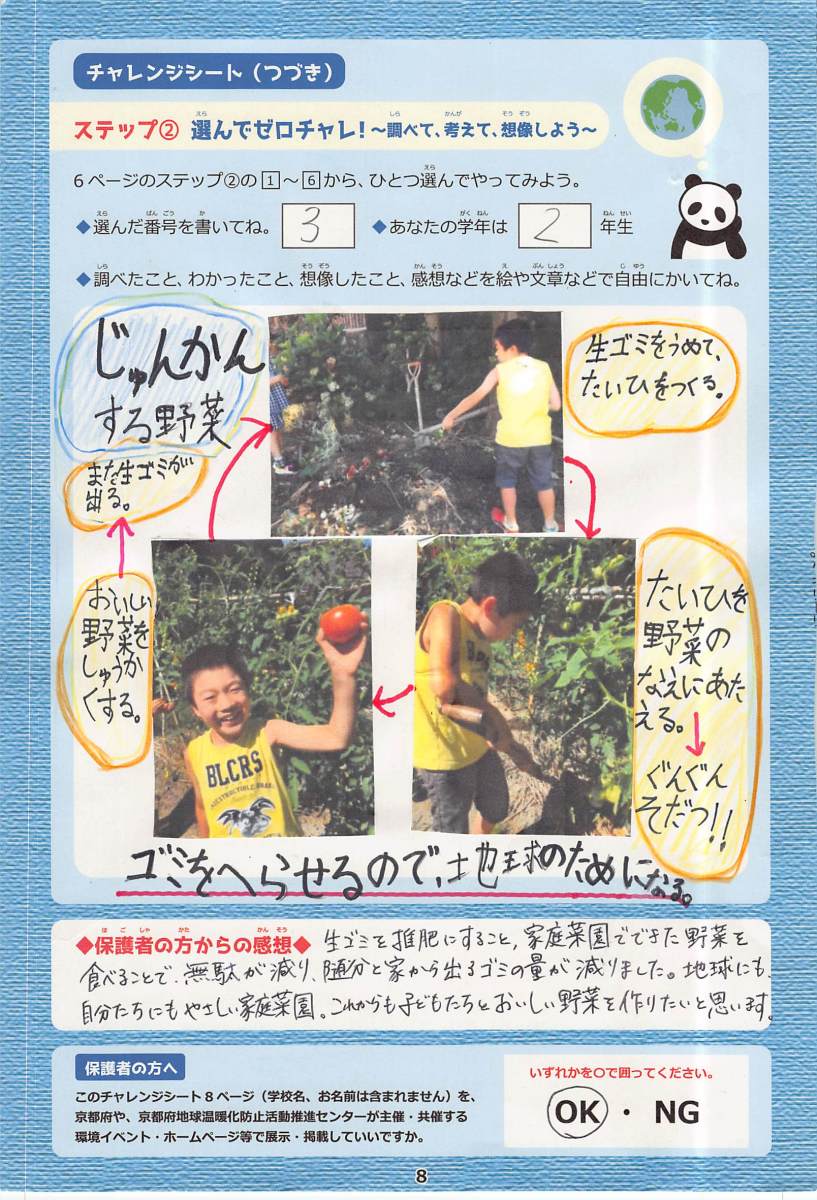 チャレンジシート（つづき）
ステップ② 選んでゼロチャレ！～調べて、考えて、想像しよう～
6ページのステップ②の1～6から、ひとつ選んでやってみよう。
◆選んだ番号を書いてね。 3 ◆あなたの学年は 2 年生
◆調べたこと、わかったこと、想像したこと、感想などを絵や文章などで自由にかいてね。
じゅんかん
する野菜
生ゴミをうめて、
たいひをつくる。
たいひを
野菜の
なえにあた
える。
ぐんぐん
そだつ!!
おいしい
野菜を
しゅうか
くする。
また生ゴミが
出る。
BLCRS
ゴミをへらせるので、地球のためになる。
◆保護者の方からの感想◆ 生ゴミを堆肥にすること、家庭菜園でできた野菜を
食べることで、無駄が減り、随分と家から出るゴミの量が減りました。地球にも、
自分たちにもやさしい家庭菜園。これからも子どもたちとおいしい野菜を作りたいと思います。
保護者の方へ
このチャレンジシート8ページ（学校名、お名前は含まれません）を、
京都府や、京都府地球温暖化防止活動推進センターが主催・共催する
環境イベント・ホームページ等で展示・掲載していいですか。
いずれかを○で囲ってください。
OK・NG
8